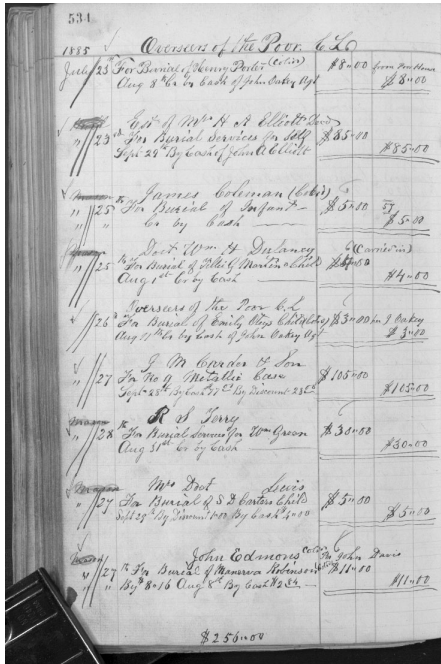 534
1885 Overseers of the Poor C L
July 23 For Burial of Henry Porter (Col'd) $8"00 from Poor House
Aug 8th Cr by Cash of John Oakey Agt $8"00
Est of Mrs H A Elliott Dec'd
" 23rd For Burial Services for Self $85"00
Sept 29th By Cash of John A Elliott $85"00
James Coleman (Col'd)
" 25th For Burial of Infant $5"00
" " Cr by Cash $5"00
Doct Wm H Dulaney
" 25th For Burial of Martin Child
Aug 1st Cr by Cash $4"00
Overseers of the Poor C L
" 26 For Burial of Emily Child (Col'd) $3"00 J Oakey
Aug 11th Cr by Cash of John Oakey Agt $3"00
J M Carder & Son
" 27 For No 9 Metallic Case $105"00
Sept 28th By Cash By Discount $105"00
R S Terry
" 28th For Burial Services for Wm Green $30"00
Aug 31st Cr by Cash $30"00
Mrs Lewis
" 27 For Burial of S D Carters Child $5"00
Sept 29th By Discount 1"00 By Cash 4"00 $5"00
John Edmons Col'd John Davis
" 27th For Burial of Manerva Robinson $11"00
" By 8"16 Aug 8th By Cash $2.84 $11"00
$256"00